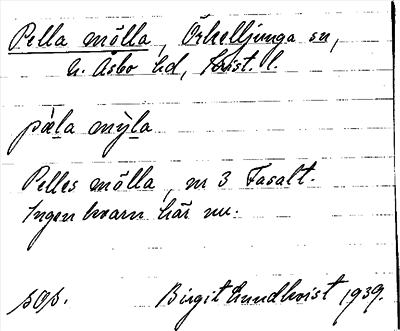 Pella mölla, Örkelljunga sn,
N. Åsbo hd, Krist. l.
pæla myla
Pelles mölla, nr 3 Fasalt.
Ingen kvarn här nu.
sOp. Birgit Lundkvist 1939.